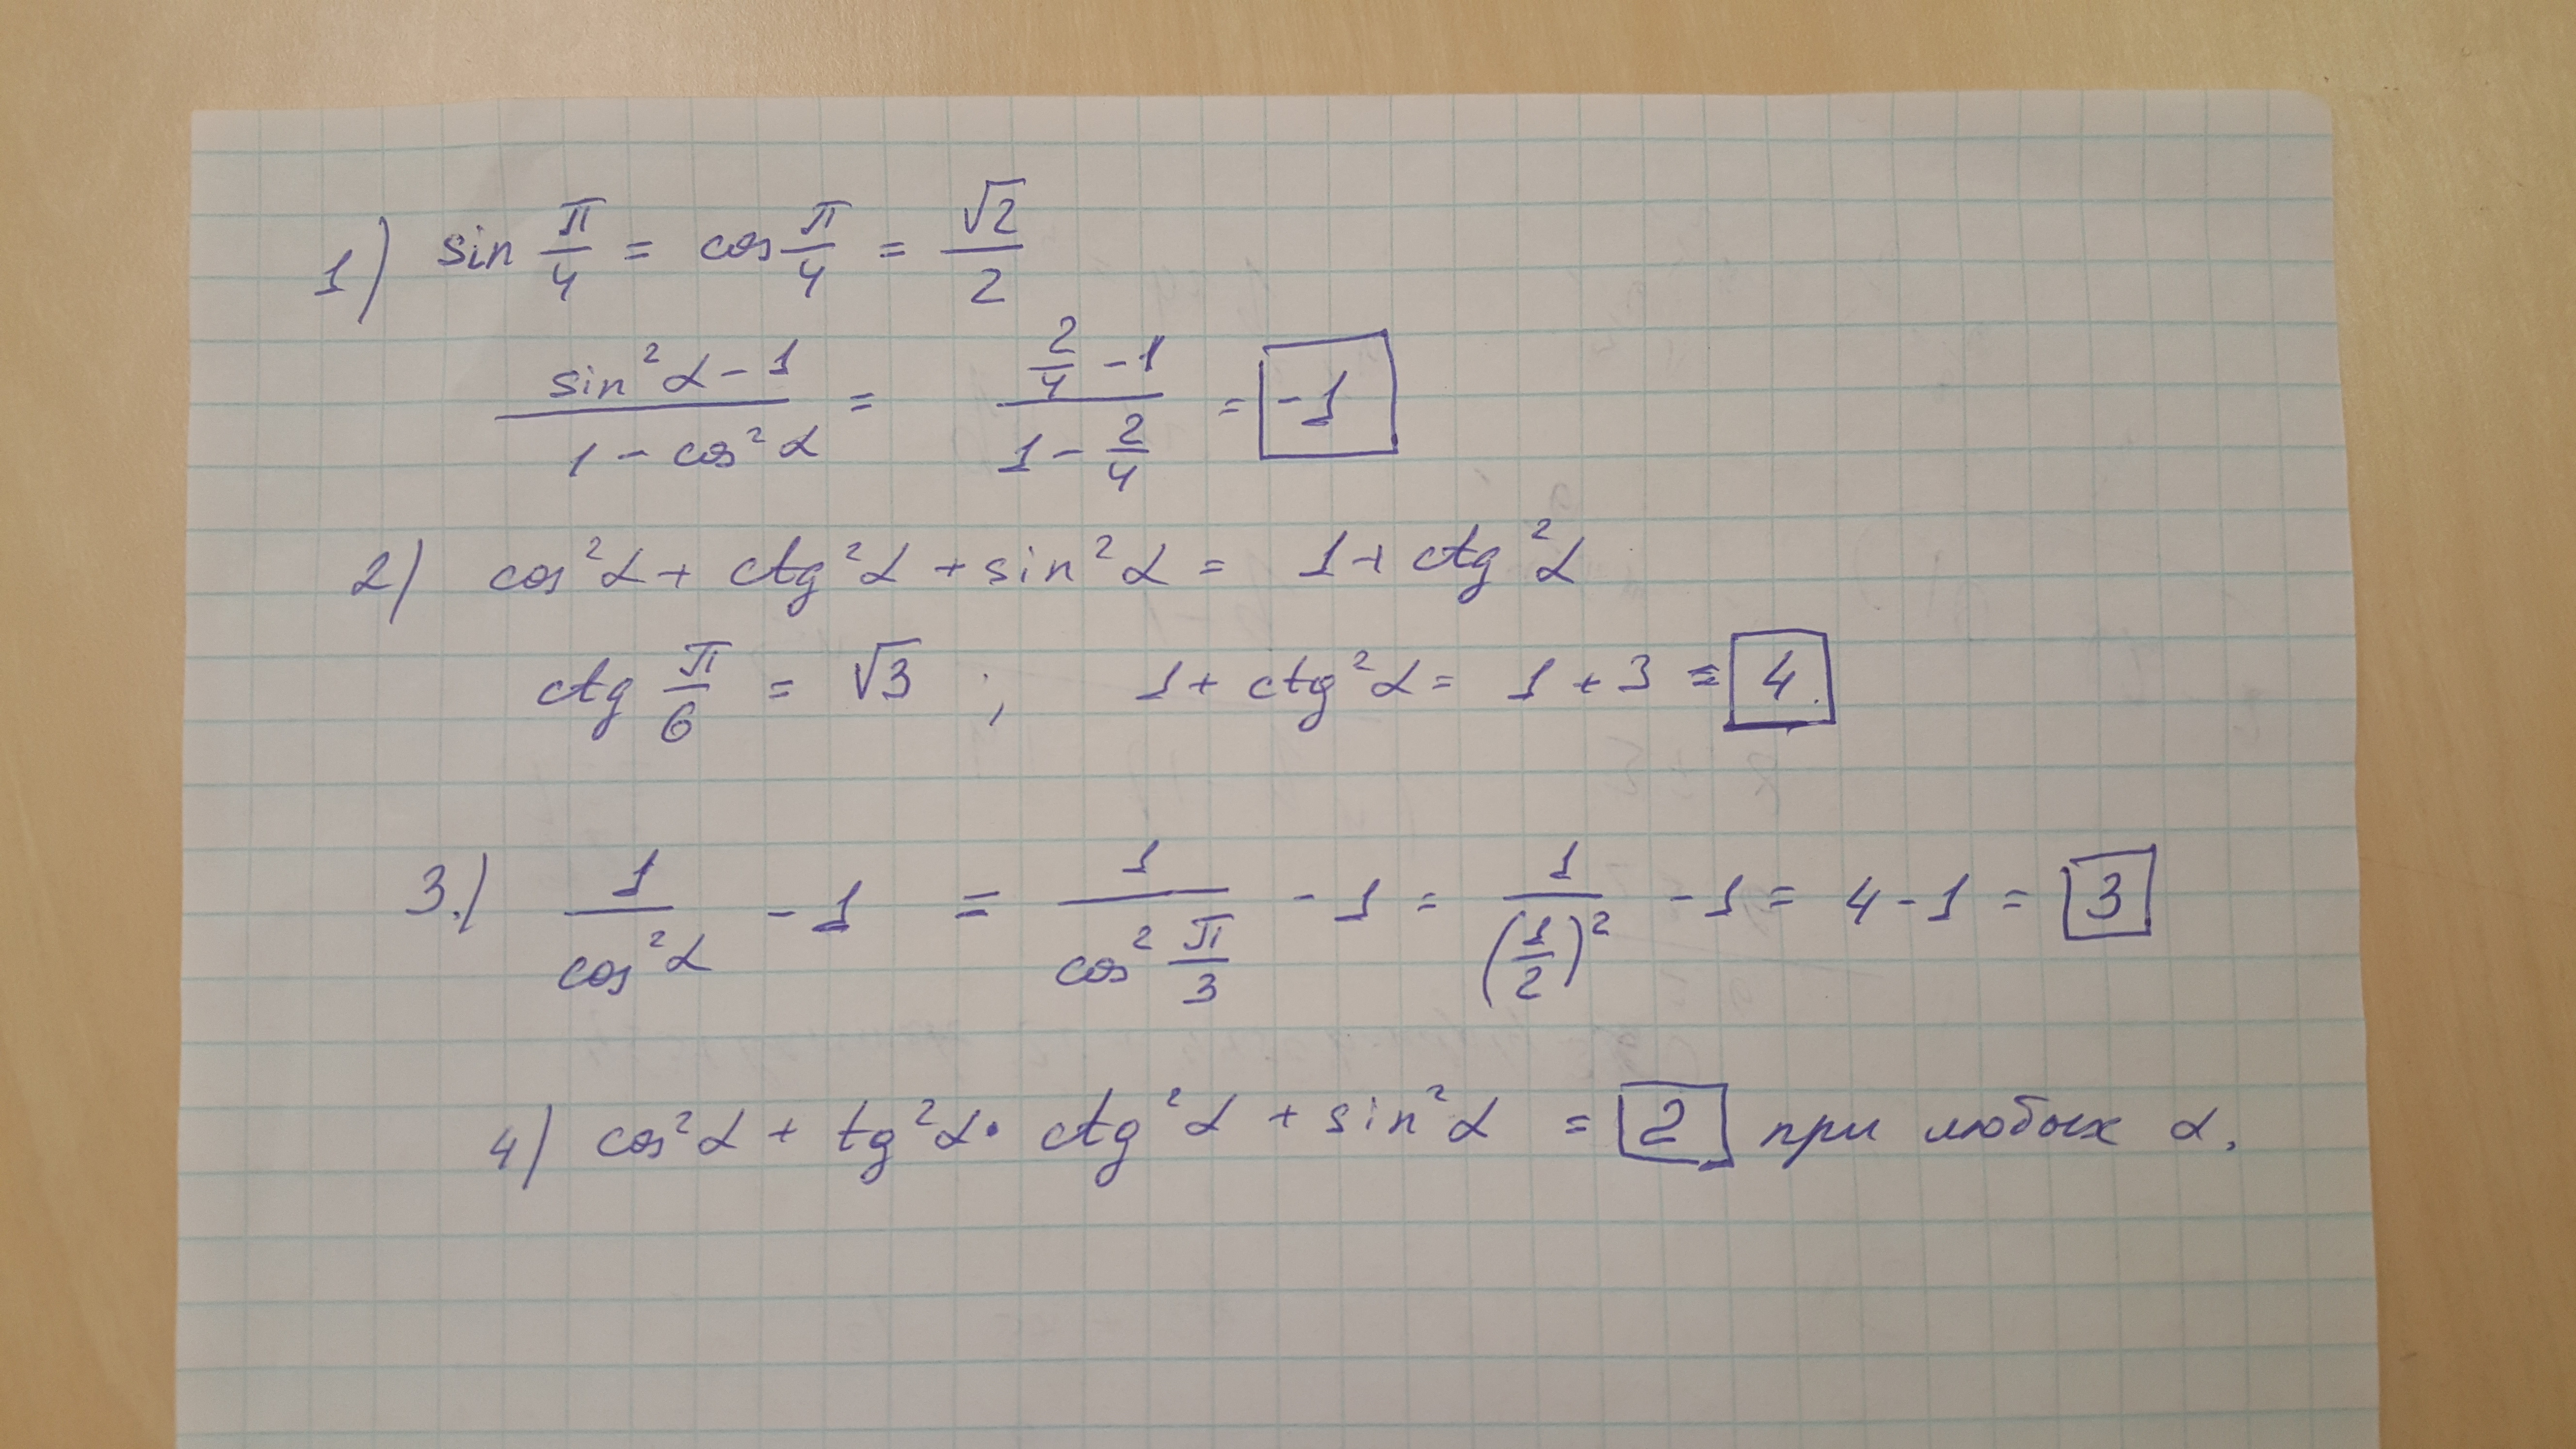 1) sin π/4 = cos π/4 = √2/2
(sin²α - 1)/(1 - cos²α) = (2/4 - 1)/(1 - 2/4) = -1
2) cos²α + ctg²α + sin²α = 1 + ctg²α
ctg π/6 = √3 ; 1 + ctg²α = 1 + 3 = 4.
3.) 1/cos²α - 1 = 1/(cos² π/3) - 1 = 1/(1/2)² - 1 = 4 - 1 = 3
4) cos²α + tg²α · ctg²α + sin²α = 2 при любых α.